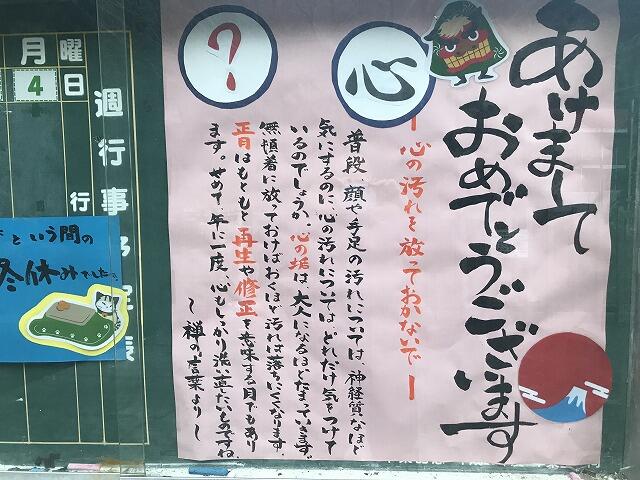 あけまして
おめでとうございます
心
?
ー心の汚れを放っておかないでー
普段、顔や手足の汚れについては神経質なほど
気にするのに、心の汚れについてはどれだけ気をつけて
いるのでしょうか。心の垢は、大人になるほどたまっていきます。
無頓着に放っておけばおくほど汚れは落ちにくくなります。
正月はもともと再生や修正を意味する月でもあり
ます。せめて年に一度、心もしっかり洗い直したいものですね。
～禅の言葉より～
週行事予定表
月曜
4日
行
という間の
冬休みでした